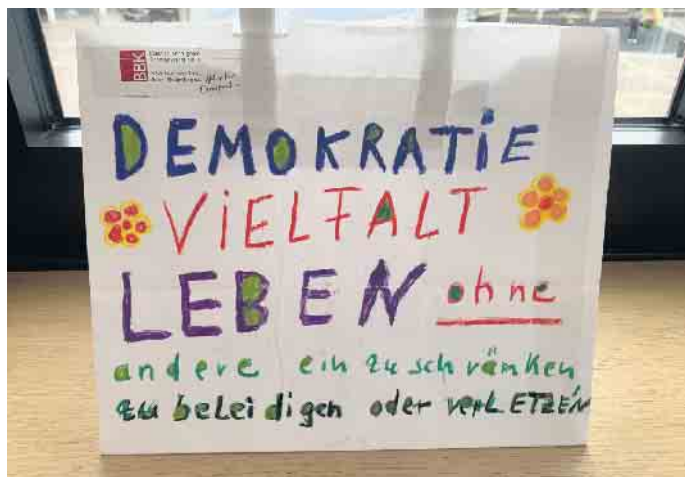 BBK
DEMOKRATiE
ViELFALT
LEBEN ohne
andere ein zu schränken
zu beleidigen oder verLETZEN